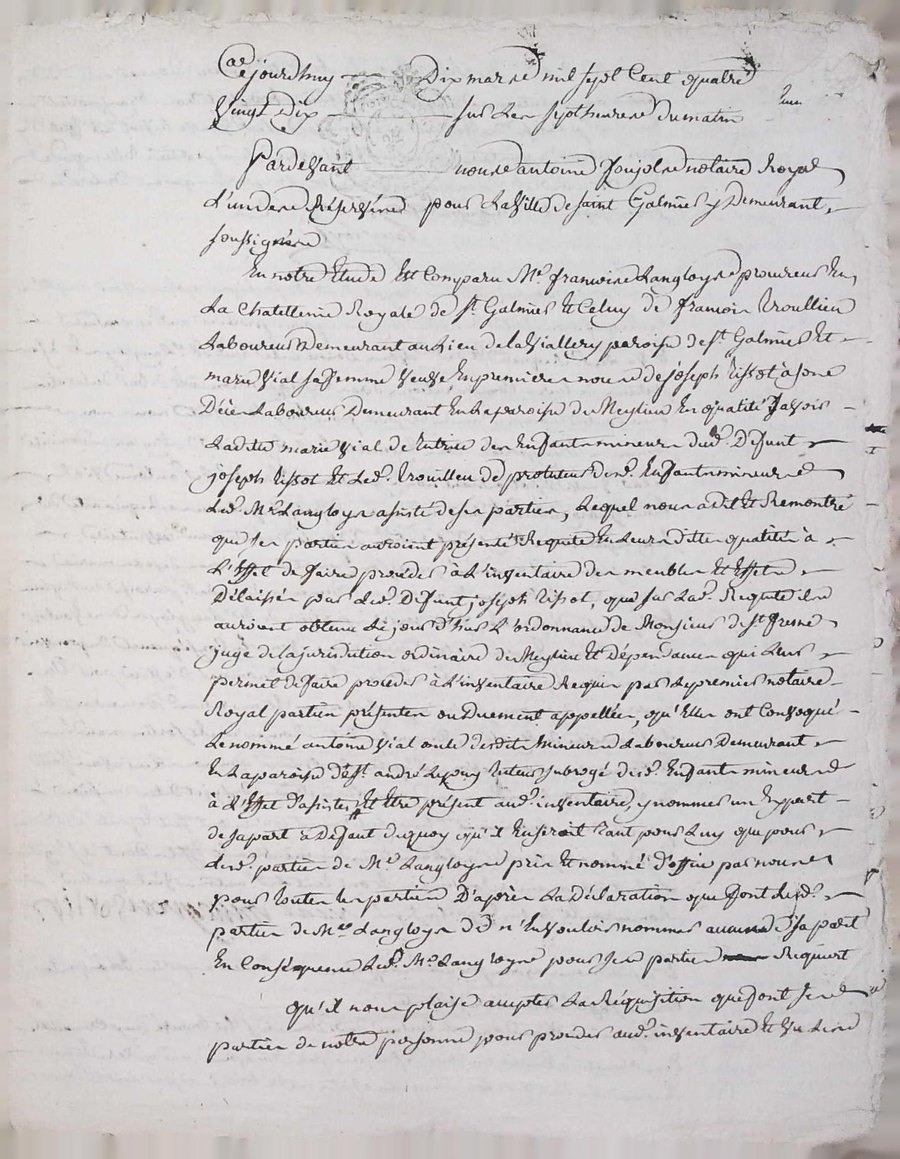 Cejourdhuy Dix mars mil sept Cent quatre
Vingt Dix sur Les sept heures du matin
Pardevant nous antoine notaire Royal
L'un des Réservés pour La Ville de saint Galmier y Demeurant
soussigné
En notre Etude Est Comparu Me. francois Langloys procureur En
La Chatellenie Royale de St. Galmier Et Celuy de francois Troullieu
Laboureur Demeurant au Lieu de la Viallery paroisse de St. Galmier Et
marie Vial sa femme Veuve En premieres noces de joseph Tissot à son
Décès Laboureur Demeurant En La paroisse de Meylieu En qualité Savoir
Ladite marie Vial de tutrice des Enfants mineurs dud. Défunt
joseph Tissot Et Led. Trouilleu de protuteur desd. Enfants mineurs
Led. Me. Langloys assisté de ses parties, Lequel nous a dit Et Remontré
que ses parties auroient présenté Requete En Leurs dittes qualités à
L'Effet de faire proceder à L'inventaire des meubles Et Effets
Délaissés par Led. Défunt joseph Tissot, que sur Lad. Requete ils
auroient obtenu Le jour D'hier L'ordonnance de Monsieur de St. fresne
juge de la jurisdiction ordinaire de Meylieu Et Dépendances qui Leur
permet de faire proceder à L'inventaire Requis par Le premier notaire
Royal parties présentes ou Duement appellées, qu'Elles ont Convoqué
Le nommé antoine Vial oncle desdits mineurs Laboureur Demeurant
En La paroisse de St. andré Le puy tuteur subrogé desd. Enfants mineurs
à L'Effet d'assister Et Etre présent aud. inventaire, y nommer un Expert
de sa part à Défaut de quoy qu'il En seroit tant pour Luy que pour
Lesd. parties de Me. Langloys pris Et nommé D'office par nous
pour toutes Les parties D'après La Déclaration que font Lesd.
parties de Me. Langloys de n'En vouloir nommer aucuns de sa part
En Conséquence Led. Me. Langloys pour ses parties Requiert
qu'il nous plaise accepter La Réquisition que font ses
parties de notre personne pour proceder aud. inventaire Et